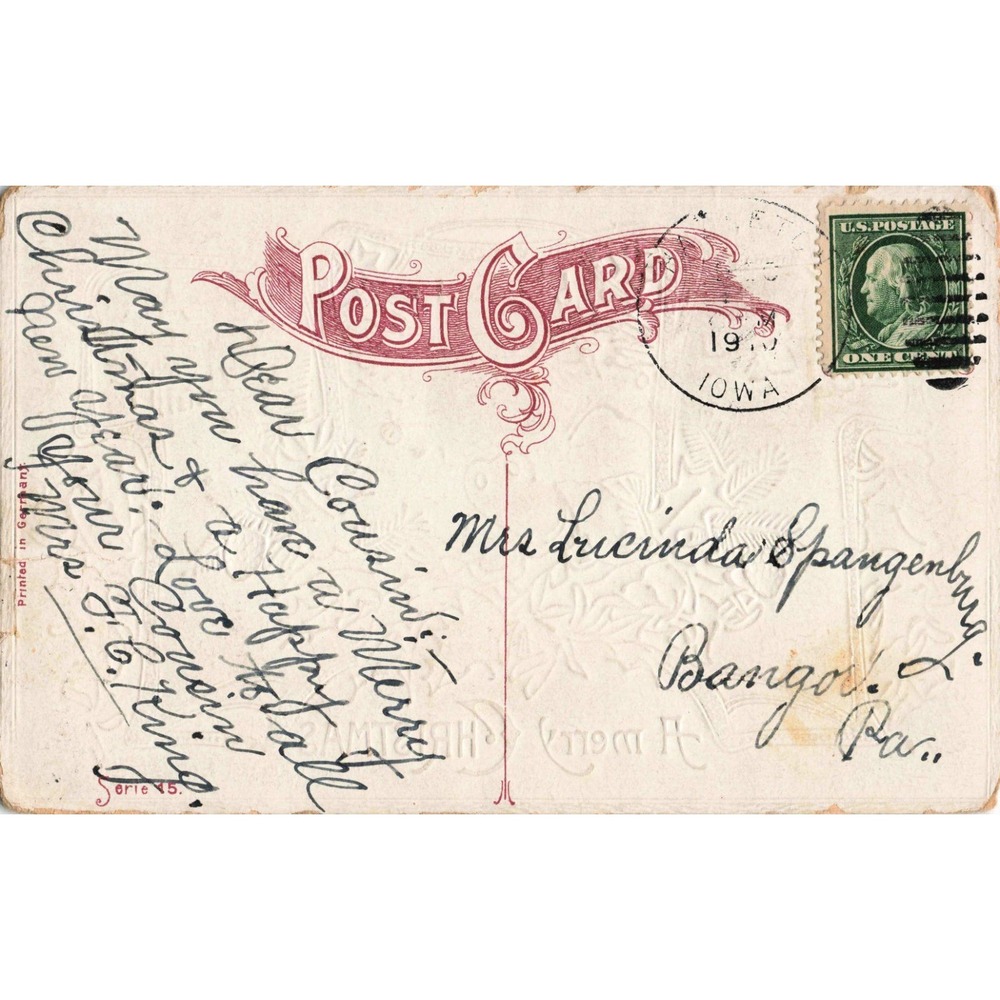 POST CARD
U.S. POSTAGE
ONE CENT
19
IOWA
Dear Cousin:-
May you have a Merry
Christmas & a Happy
New Year. Love to all
Your Cousin
Mrs
King.
Mrs Lucinda Spangenburg.
Bangor.
Pa..
Printed in Germany.
Serie 15.
A merry CHRISTMAS